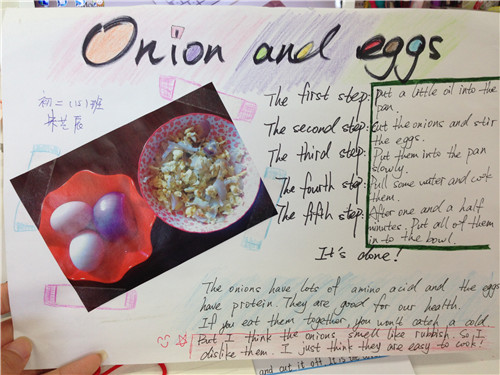 Onion and eggs
初二(15)班
The first step: Put a little oil into the
pan.
The second step: Cut the onions and stir
the eggs.
The third step: Put them into the pan
slowly.
The fourth step: Pull some water and cook
them.
The fifth step: After one and a half
minutes. Put all of them
in to the bowl.
It's done!
The onions have lots of amino acid and the eggs
have protein. They are good for our health.
If you eat them together you won't catch a cold.
But I think the onions smell like rubbish. so I
dislike them. I just think they are easy to cook!
and cut it off. It is